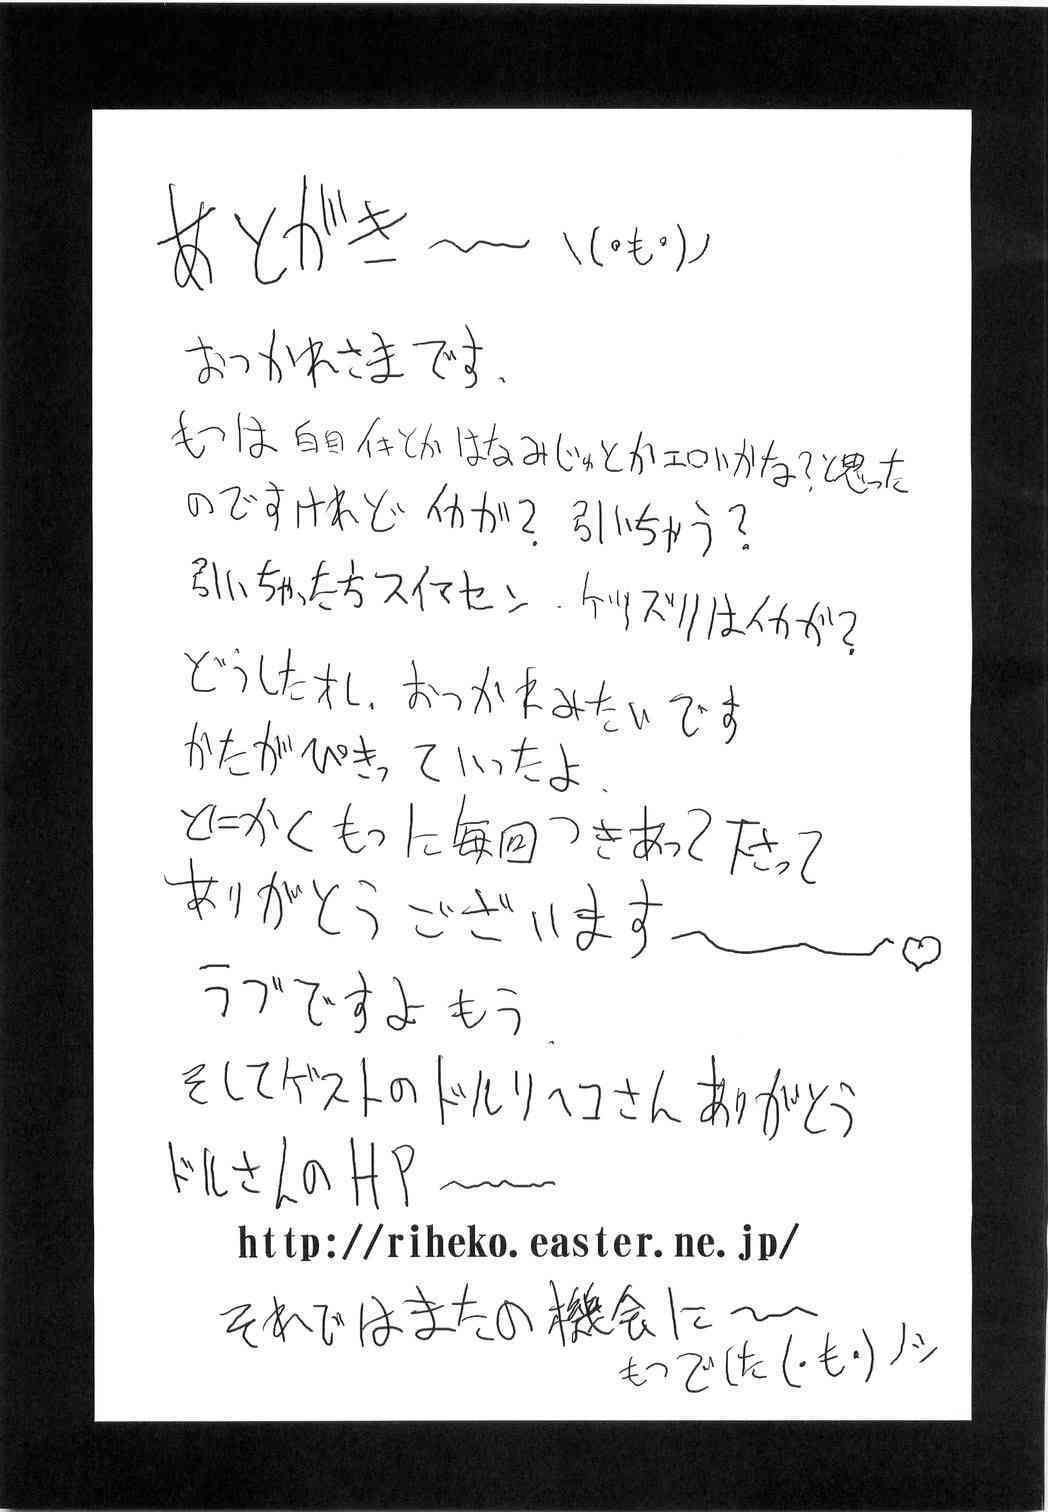 あとがき〜〜 \(・も・)ノ
おつかれさまです、
もつは 白目イキとか はなみじゅとかエロいかな？と思った
のですけれど イカが？ 引いちゃう？
引いちゃったらスイマセン．ケツズリはイカが？
どうしたオレ、おつかれみたいです
かたがぴきっていったよ．
とにかくもつに毎回つきあって下さって
ありがとうございます〜〜〜♡
ラブですよ もう．
そしてゲストのドルリヘコさん ありがとう
ドルさんのHP〜〜〜
http://riheko.easter.ne.jp/
それではまたの機会に〜〜
もつでした(・も・)ノシ